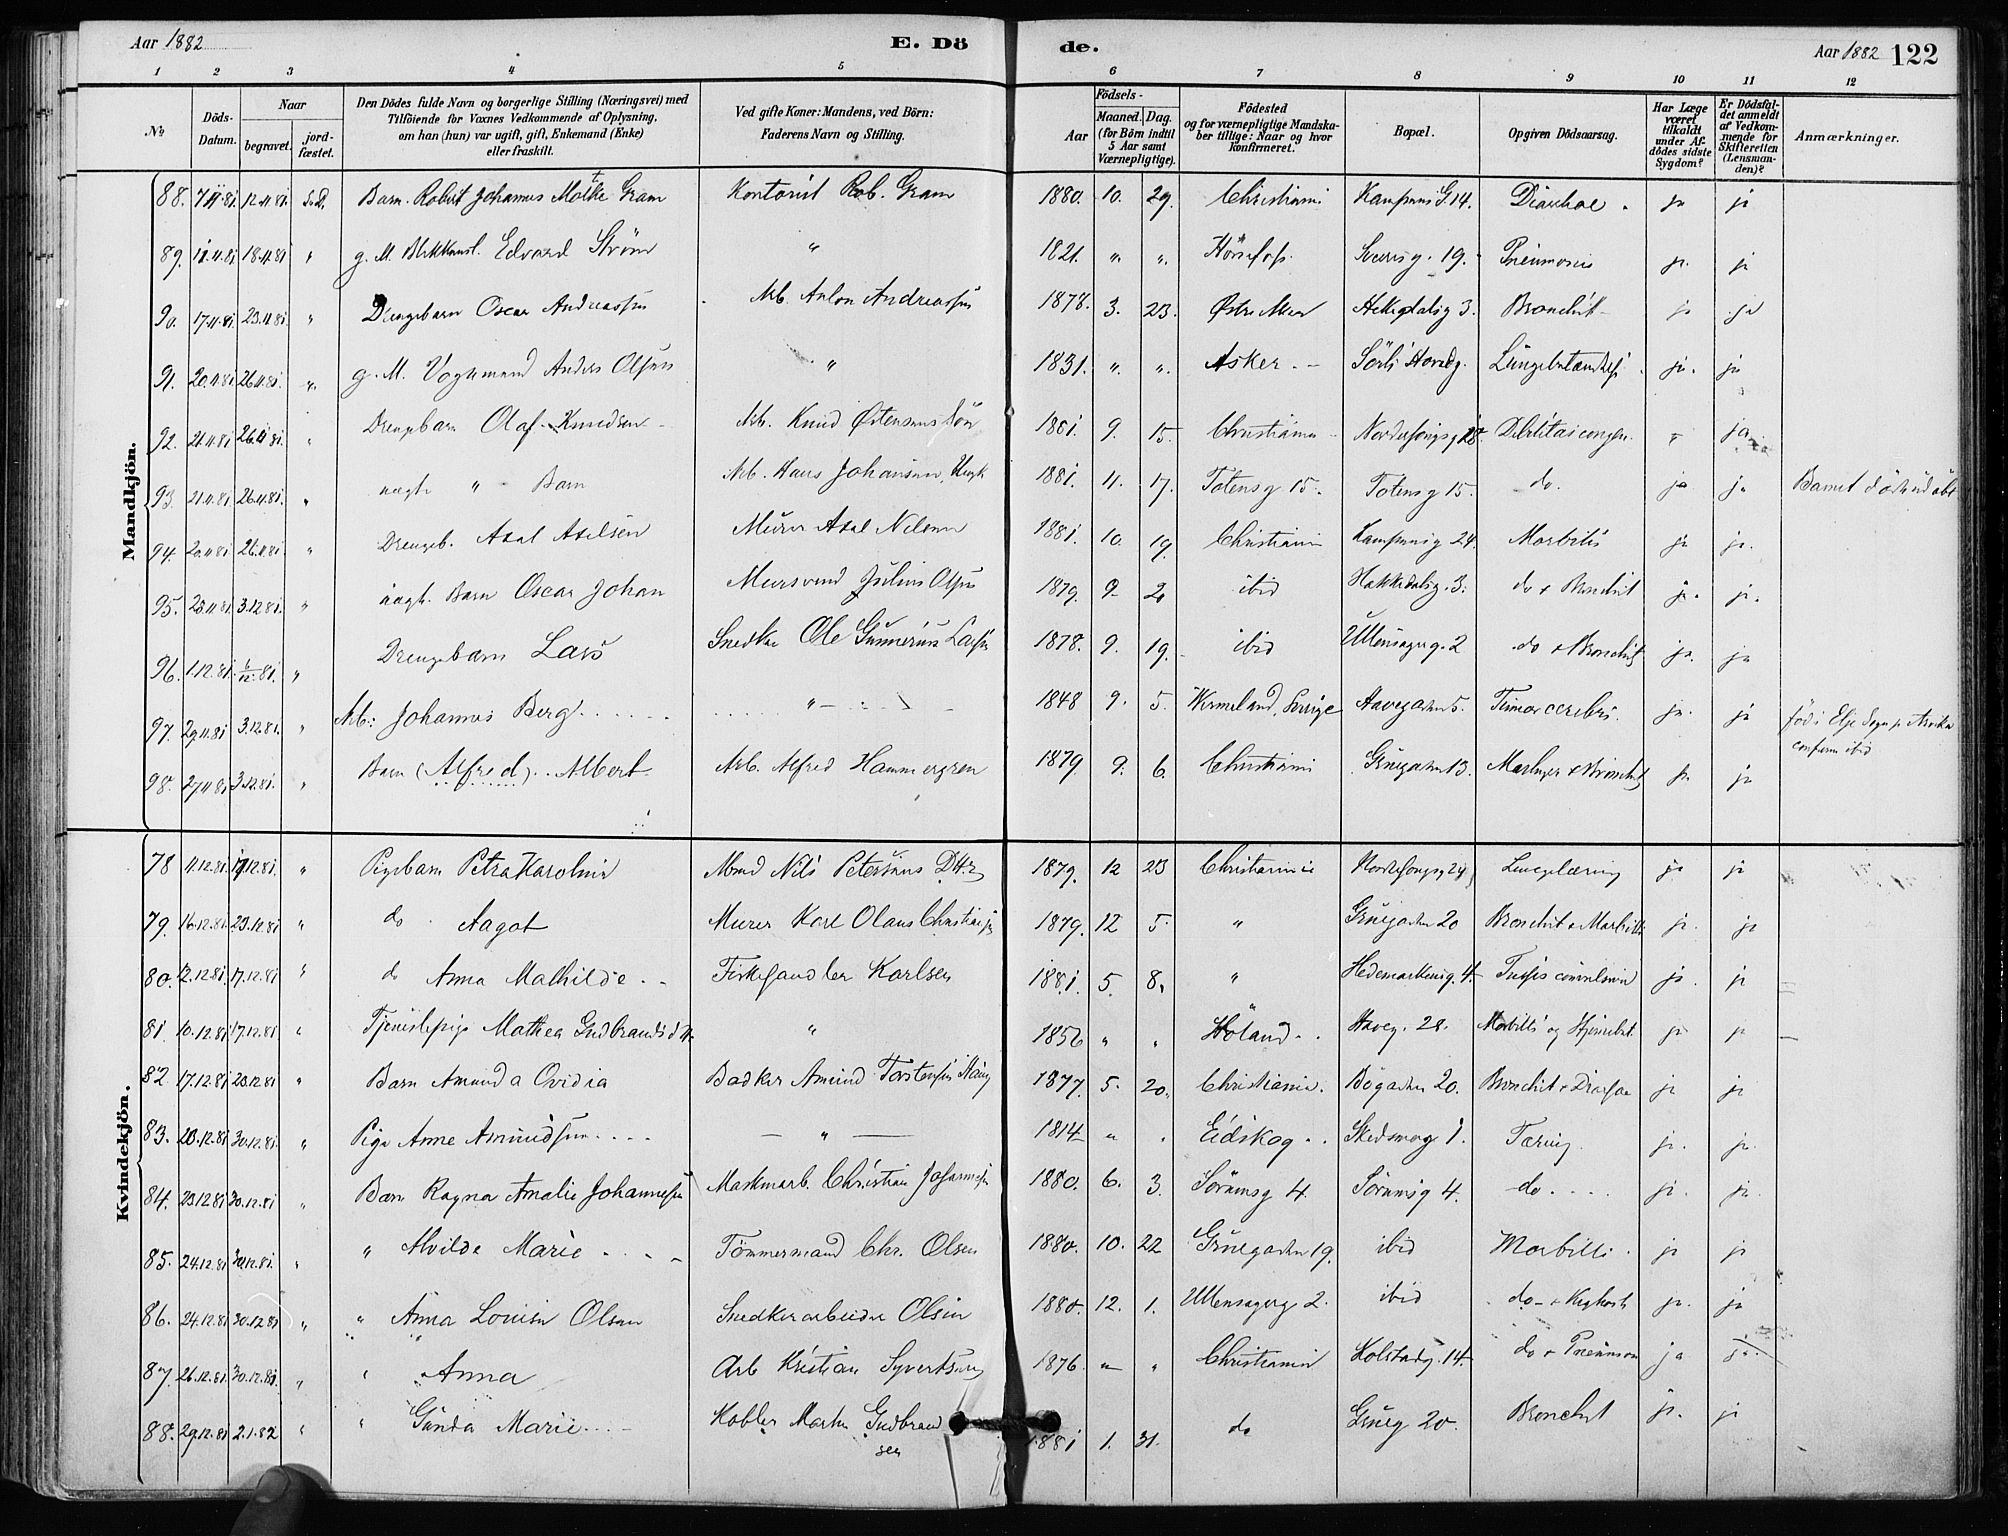 Aar 1882 E. Dö de. Aar 1882 122
1 2 3 4 5 6 7 8 9 10 11 12
No Döds-Datum. Naar begravet. jord-fæstet. Den Dödes fulde Navn og borgerlige Stilling (Næringsvei) med Tilföiende for Voxnes Vedkommende af Oplysning, om han (hun) var ugift, gift, Enkemand (Enke) eller fraskilt. Ved gifte Koner: Mandens, ved Börn: Faderens Navn og Stilling. Födsels- Aar Maaned. Dag. (for Börn indtil 5 Aar samt Værnepligtige). Födested og for værnepligtige Mandskaber tillige: Naar og hvor konfirmeret. Bopæl. Opgiven Dödsaarsag. Har Læge været tilkaldt under Afdödes sidste Sygdom? Er Dödsfaldet anmeldt af Vedkommende for Skifteretten (Lensmanden)? Anmærkninger.
Mandkjön.
88. 7.11.81 12.11.81. Barn Robert Johannes Moltke Gram Kontorist Rob. Gram 1880. 10. 29. Christiania Kampens G. 14. Diarrhoe ja ja
89. 11.11.81 18.11.81 " g. M. Edvard Strøm " 1821. " " Hönefos. 19. Pneumonie ja ja
90. 17.11.81 23.11.81. " Drengebarn Oscar Andreassen Arb. Anton Andreassen 1878. 3. 23. Østre Aker Hakedalsg 3. Bronchit ja ja
91. 20.11.81 26.11.81. " g. M. Vognmand Anders Olsen " 1831. " " Asker Sörli Haveg. ja. ja
92. 21.11.81 26.11.81. " Drengebarn Olaf Knudsen Arb. Knud Østensens Sön 1881. 9. 15. Christiania Debilitas congen. " ja
93. 21.11.81 26.11.81. " uægte " Barn Arb. Hans Johansen, 1881. 11. 17. Totensg 15. Totensg 15. do. ja ja Barnet
94. 20.11.81 26.11.81 " Drengeb. Axel Axelsen Murer Axel Nilsen 1881. 10. 19. Christiania Kampensg 24. Morbilli ja ja.
95. 28.11.81 3.12.81. " uægt. Barn Oscar Johan Murersvend Julius Olsen 1879. 9 2 ibid Hakkedalsg. 3. do + Bronchit ja. ja.
96. 1.12.81. 6/12.81. " Drengebarn Lars Snedker Ole Gunnerius Larsen 1878. 9. 19. ibid Ullensagerg. 2 do + Bronchit ja. ja
97. 29.11.81 3.12.81. " Arb: Johannes Berg " 1848 9. 5. Wermeland, Sverige Havegaden 5. Tumor cerebri. ja. ja föd i Elje Sogn p. Arvika
confirm ibid
98. 27.11.81 3.12.81. " Barn (Alfred) Albert Arb. Alfred Hammergren 1879 9. 6. Christiania Gruegaden 13. Bronchit ja. ja
Kvindekjön.
78 11.12.81. 17.12.81. " Pigebarn Petra Karoline Nils Petersens Dtr 1879. 12 23 Christiania 24 ja ja
79. 16.12.81. 23.12.81 " do Aagot Murer Karl Olaus Christiansen 1879. 12 5. " Gruegaden 20 Bronchit + Morbilli ja. ja
80. 12.12.81. 17.12.81. " do Anna Mathilde Fiskehandler Karlsen 1881. 5. 8. " Hedemarkensg. 4 Tussis convulsiva ja. ja
81. 10.12.81 17.12.81 " Tjenestepige Mathea Gudbrandsd. " 1856 " " Höland Haveg. 28. Morbilli og ja ja
82. 17.12.81 23.12.81 " Barn Amunda Ovidia Amund Torstensen 1877. 5. 20. Christiania. Bögaden 20. Bronchit + Diarrhoe ja ja
83. 23.12.81 30.12.81. " Pige Anne Amundsen — " — 1814 " " Eidskog Skedsmog 1. Tæring. ja. ja.
84. 23.12.81 30.12.81 " Barn Ragna Amalie Johannesen Maskinarb. Christian Johannesen 1880. 6. 3. Sörumsg 4. Sörumsg 4. do ja. ja.
85. 24.12.81 30.12.81. " " Alvilde Marie Tömmermand Chr. Olsen 1880. 10. 22 Gruegaden 19. ibid Morbilli. ja ja
86. 24.12.81 30.12.81 " " Anna Louise Olsen Snedkerarbeider Olsen 1880. 12. 1. Ullensagerg 2. ibid do + Kighoste ja. ja
87. 26.12.81 30.12.81. " " Anna Arb Kristian Syvertsen 1876. " " Christiania Kolstadg. 14 do + Pneumon ja ja
88. 29.12.81 2.1.82 " " Gunda Marie Martin Gudbrand
sen 1881 1. 31. do Grueg 20. Bronchit ja. ja